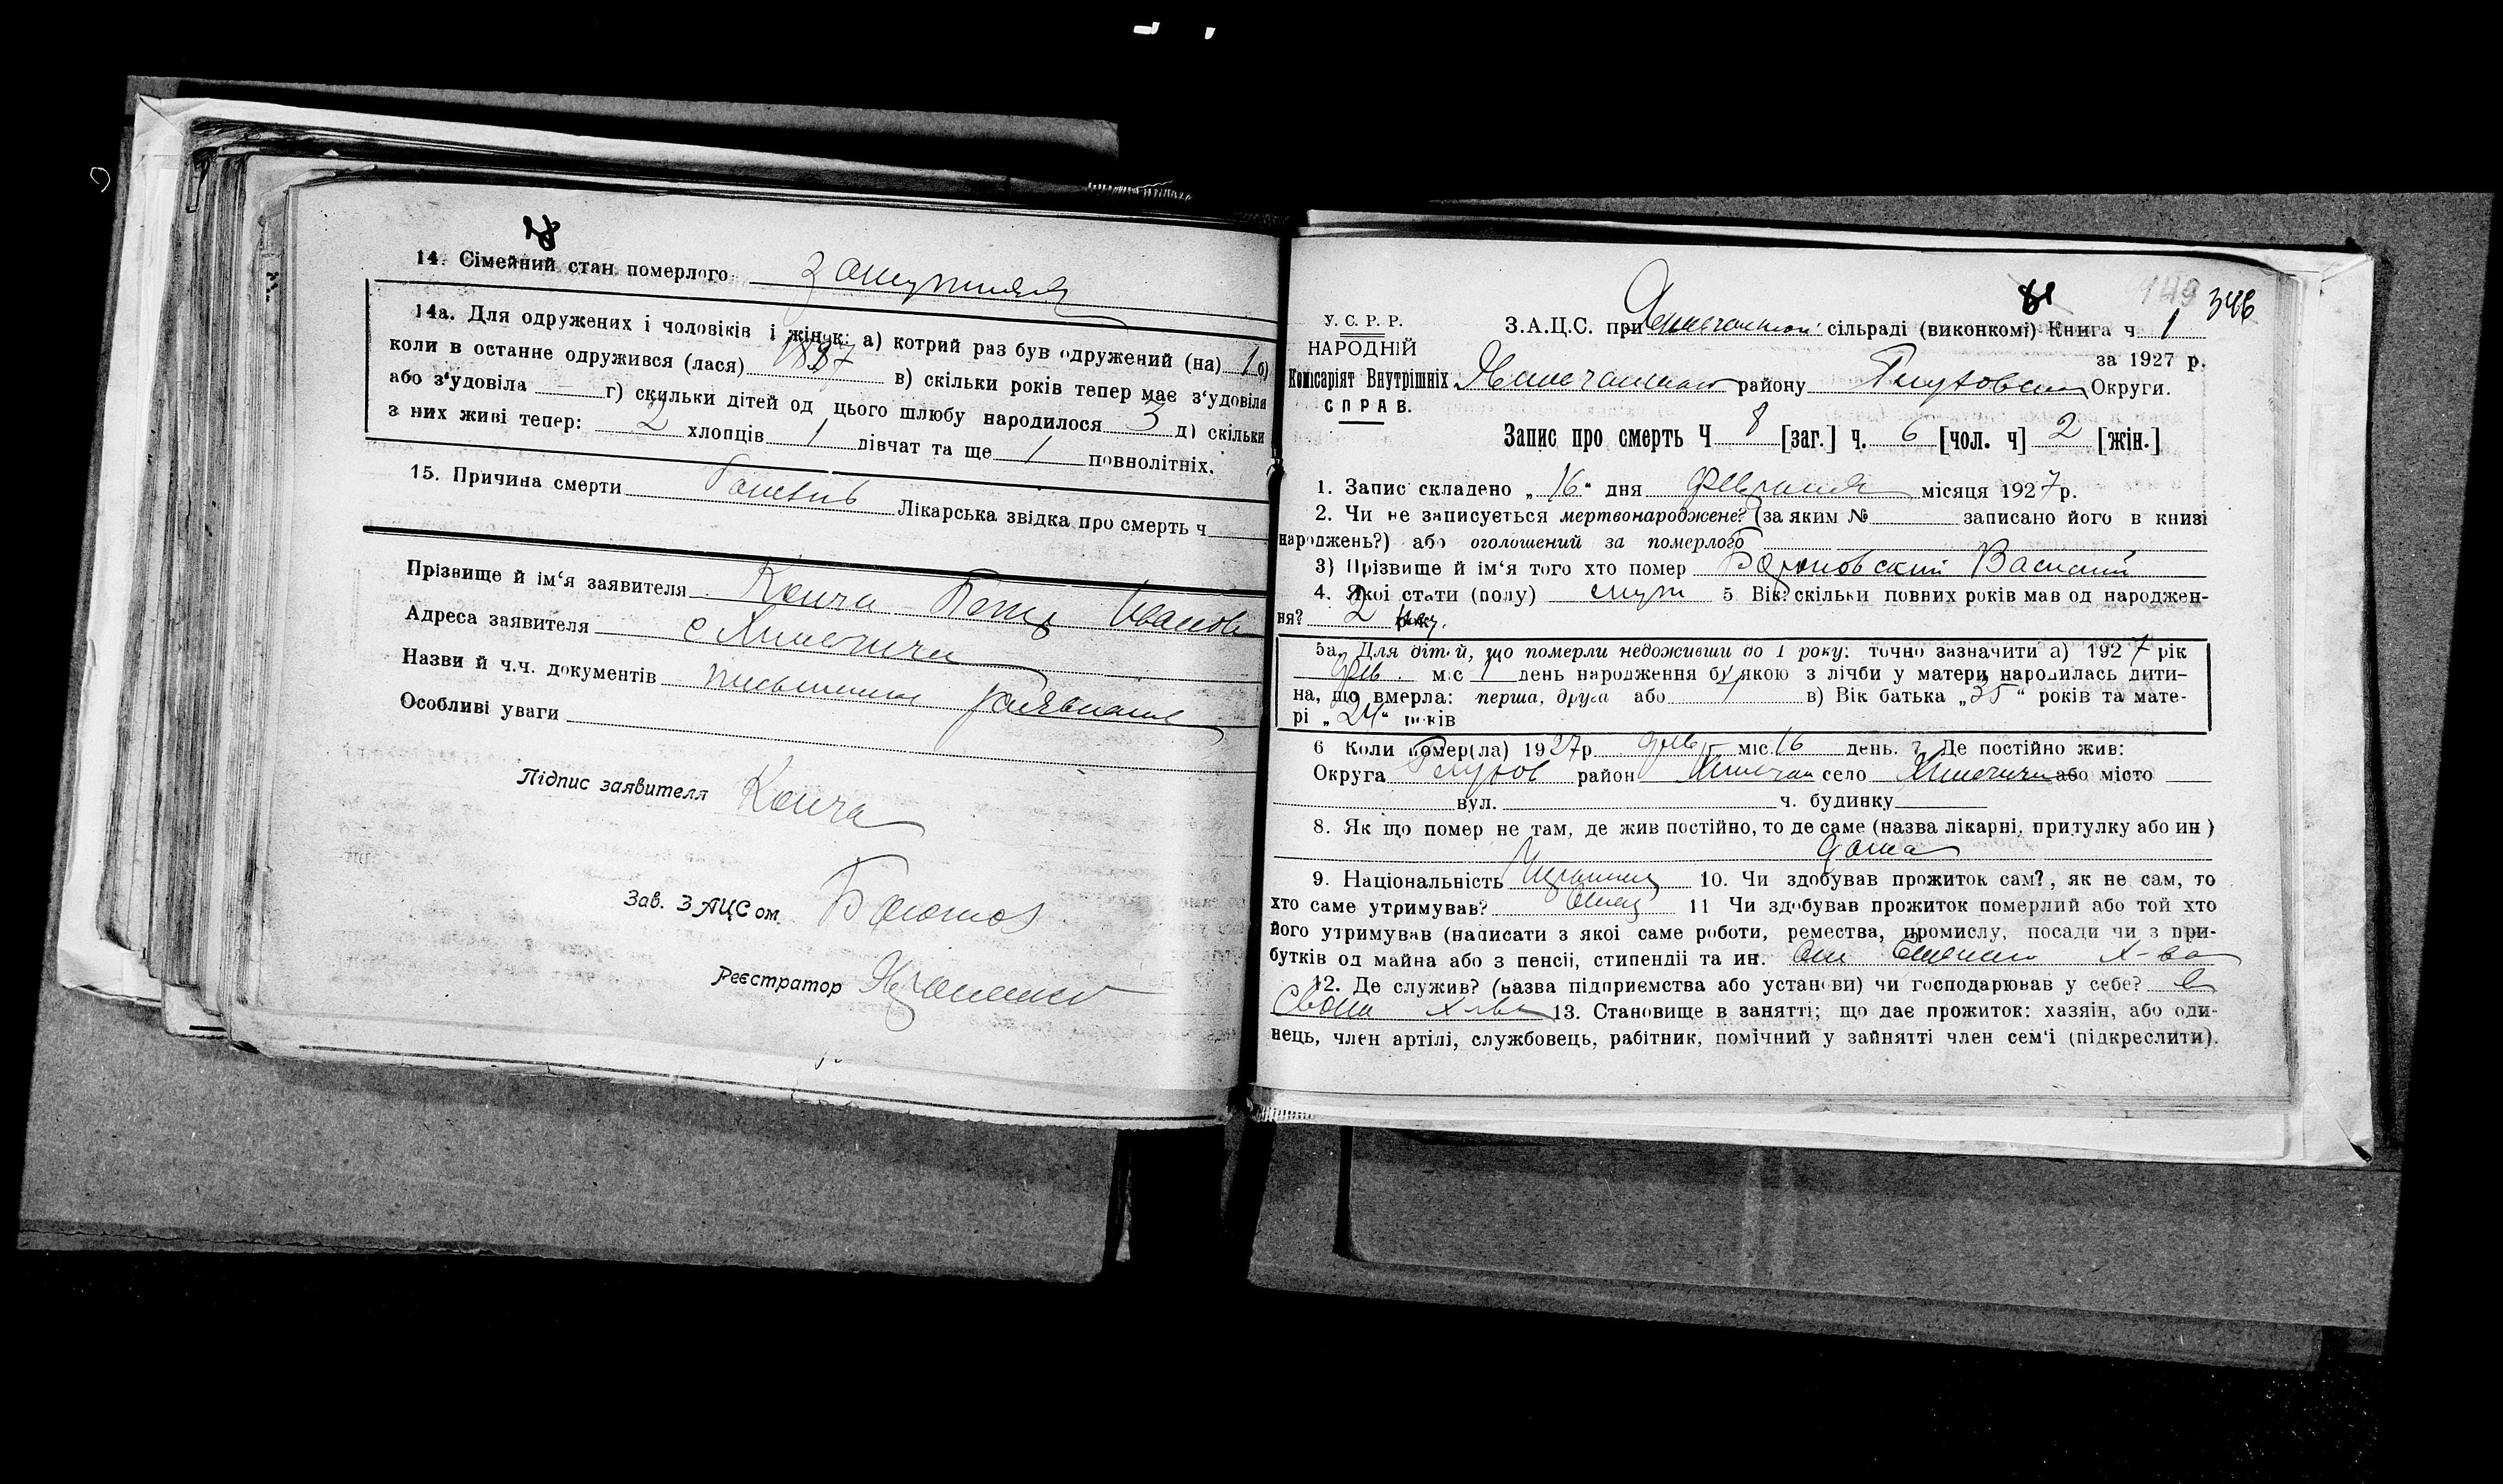 14. Сімейний стан померлого замужняя
14а. Для одружених і чоловіків і жінок: а) котрий раз був одружений (на) 1 б)
коли в останне одружився (лася) 1887 в) скільки років тепер має з'удовіли
або з'удовіла — г) скільки дітей од цього шлюбу народилося 3 д) скільки
з них живі тепер: 2 хлопців 1 дівчат та ще 1 повнолітніх.
15. Причина смерти Лікарська звідка про смерть ч
Прізвище й ім'я заявителя Конча Петр Иванов
Адреса заявителя с
Назви й ч.ч. документів
Особливі уваги
Підпис заявителя Конча
Зав. ЗАЦСом
Реєстратор
149 346
У. С. Р. Р.
НАРОДНІЙ
Комісаріят Внутрішніх
СПРАВ.
З.А.Ц.С. при сільраді (виконкомі) Книга ч 1
за 1927 р.
району Глуховской Округи.
Запис про смерть Ч 8 [заг.] ч. 6 [чол. ч] 2 [жін.]
1. Запис складено „16“ дня февраля місяця 1927 р.
2. Чи не записується мертвонароджене? (за яким № записано його в книзі
народжень?) або оголошений за померлого
3) Прізвище й ім'я того хто помер Барановский Василий
4. Якої стати (полу) муж 5 Вік? скільки повних років мав од народжен-
ня? 2
5а. Для дітей, що померли недоживши до 1 року: точно зазначити а) 1927 рік
фев. міс 1 день народження б) якою з лічби у матери народилась дити-
на, що вмерла: перша, друга або 1 в) Вік батька „35“ років та мате-
рі „24“ років
6 Коли помер(ла) 1927р. фев. міс. 16 день. 7 Де постійно жив:
Округа Глухов район село або місто —
вул. ч. будинку
8. Як що помер не там, де жив постійно, то де саме (назва лікарні, притулку або ин)
дома
9. Національність Украинец 10. Чи здобував прожиток сам?, як не сам, то
хто саме утримував? Отец 11 Чи здобував прожиток померлий або той хто
його утримував (написати з якоі саме роботи, ремества, промислу, посади чи з при-
бутків од майна або з пенсіі, стипендіі та ин. х-ва
12. Де служив? (назва підприємства або установи) чи господарював у себе? в
своем х-ве 13. Становище в занятті; що дає прожиток: хазяін, або оди-
нець, член артілі, службовець, рабітник, помічний у зайнятті член сем'і (підкреслити).